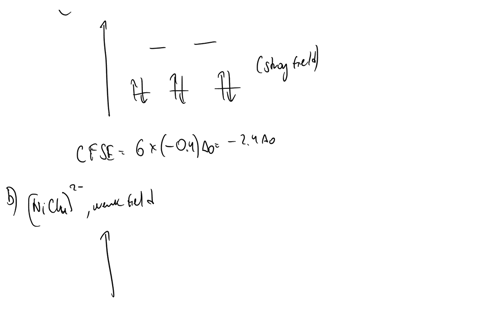 (strong field)
CFSE = 6 × (-0.4) Δo = -2.4 Δo
b) [NiCl4]²⁻, weak field